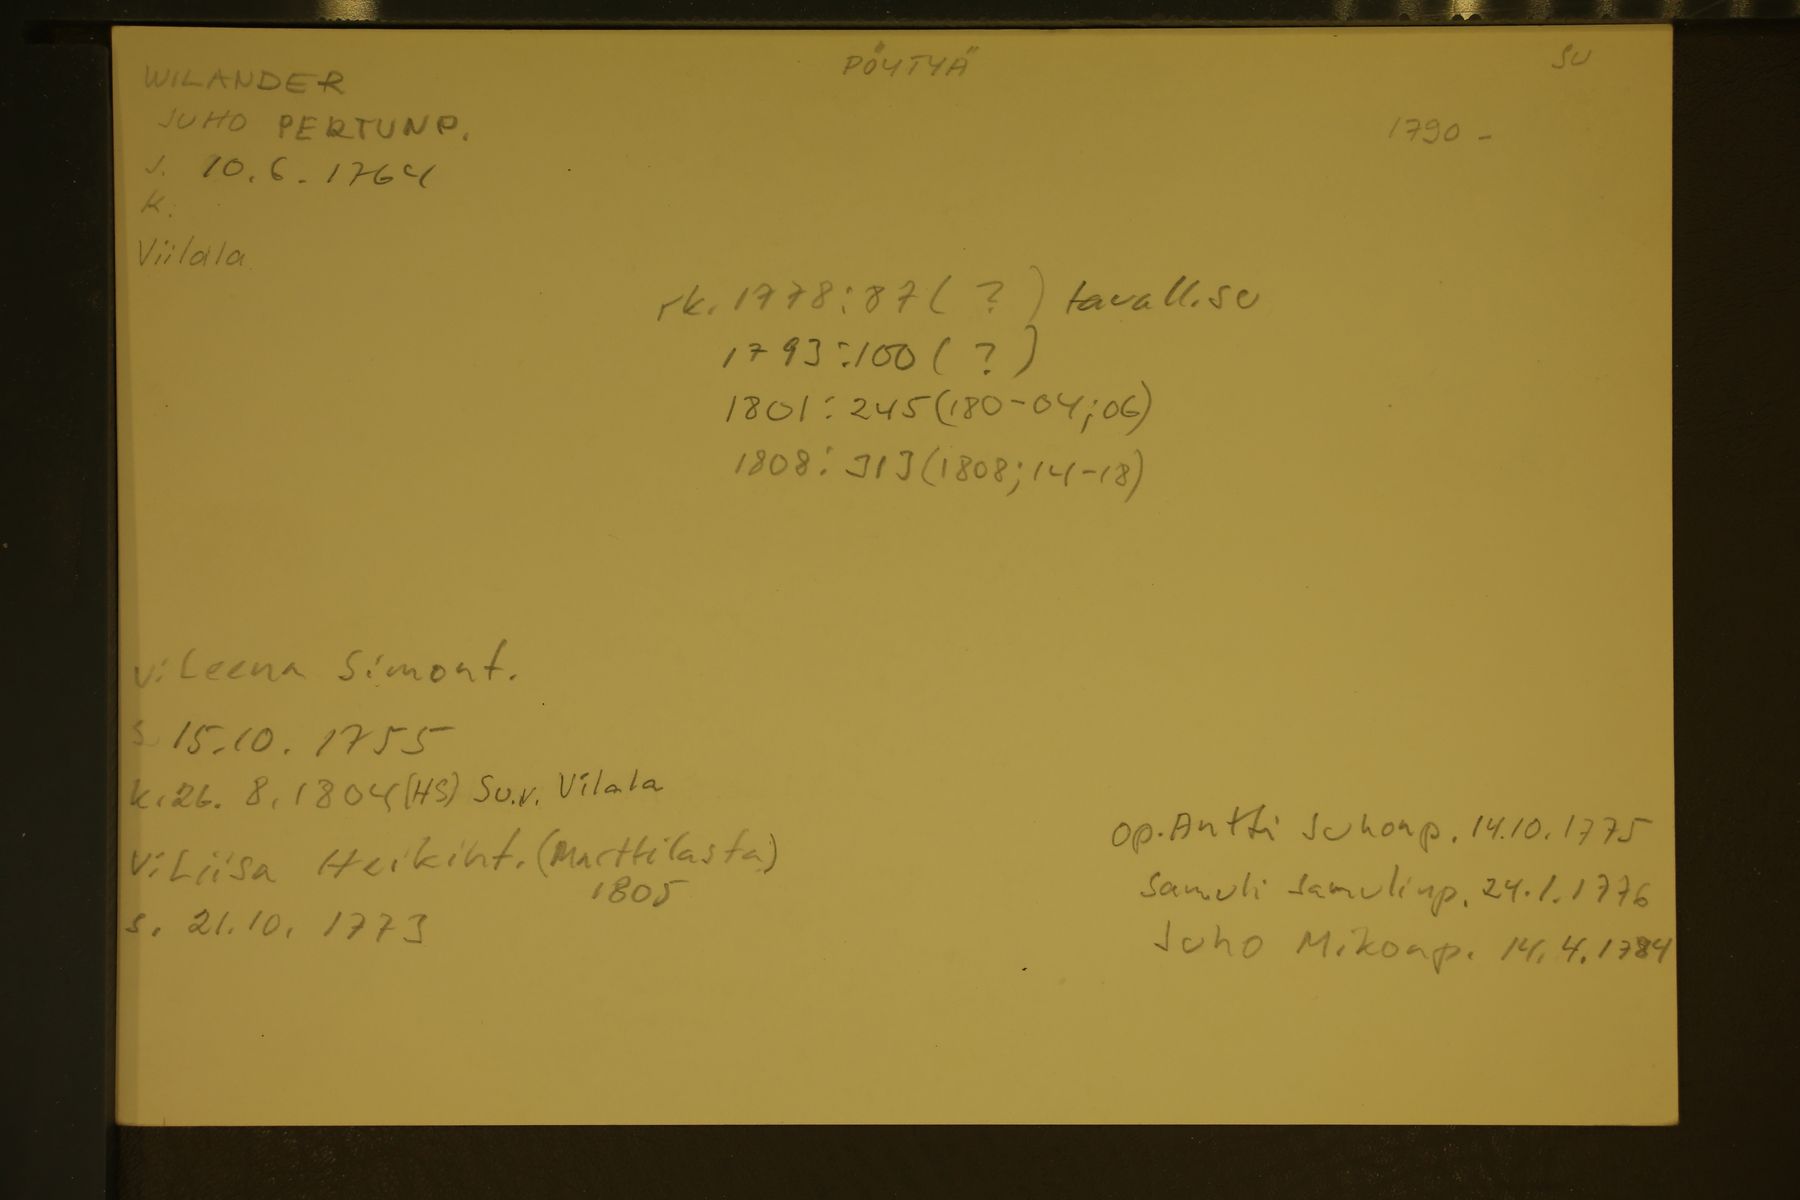 WILANDER
PÖYTYÄ
SU
JUHO PERTUNP.
1790 -
s. 10.6. 1764
k.
Viilala
rk. 1778:87 ( ? ) tavall. su
1793:100 ( ? )
1801:245 (180-04;06)
1808:313 (1808;14-18)
v: Leena Simont.
s. 15.10. 1755
k. 26. 8. 1804 (HS) Su.v. Vilala
v: Liisa Heikint. (Marttilasta)
1805
s. 21.10. 1773
op. Antti Juhonp. 14.10.1775
Samuli Samulinp. 24.1.1776
Juho Mikonp. 14.4.1784